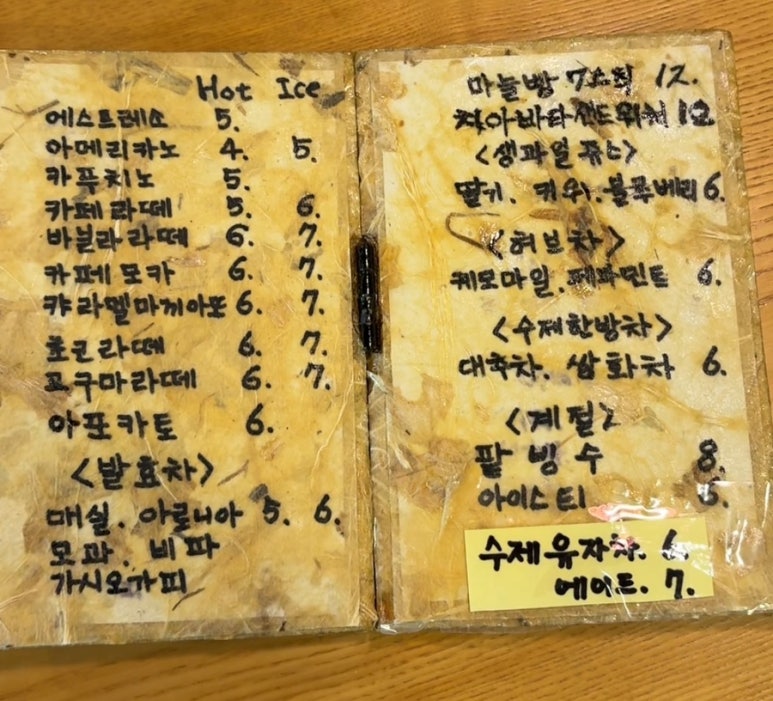 Hot Ice
에스프레소 5.
아메리카노 4. 5.
카푸치노 5.
카페라떼 5. 6.
바닐라라떼 6. 7.
카페모카 6. 7.
캬라멜마끼아또 6. 7.
초코라떼 6. 7.
고구마라떼 6. 7.
아포카토 6.
<발효차>
매실. 아로니아 5. 6.
모과. 비파
가시오가피
마늘빵 7조각 12.
치아바타샌드위치 12.
<생과일쥬스>
딸기. 키위. 블루베리 6.
<허브차>
케모마일. 페파민트 6.
<수제한방차>
대추차. 쌍화차 6.
<계절>
팥빙수 8.
아이스티 6.
수제유자차. 6.
에이드. 7.